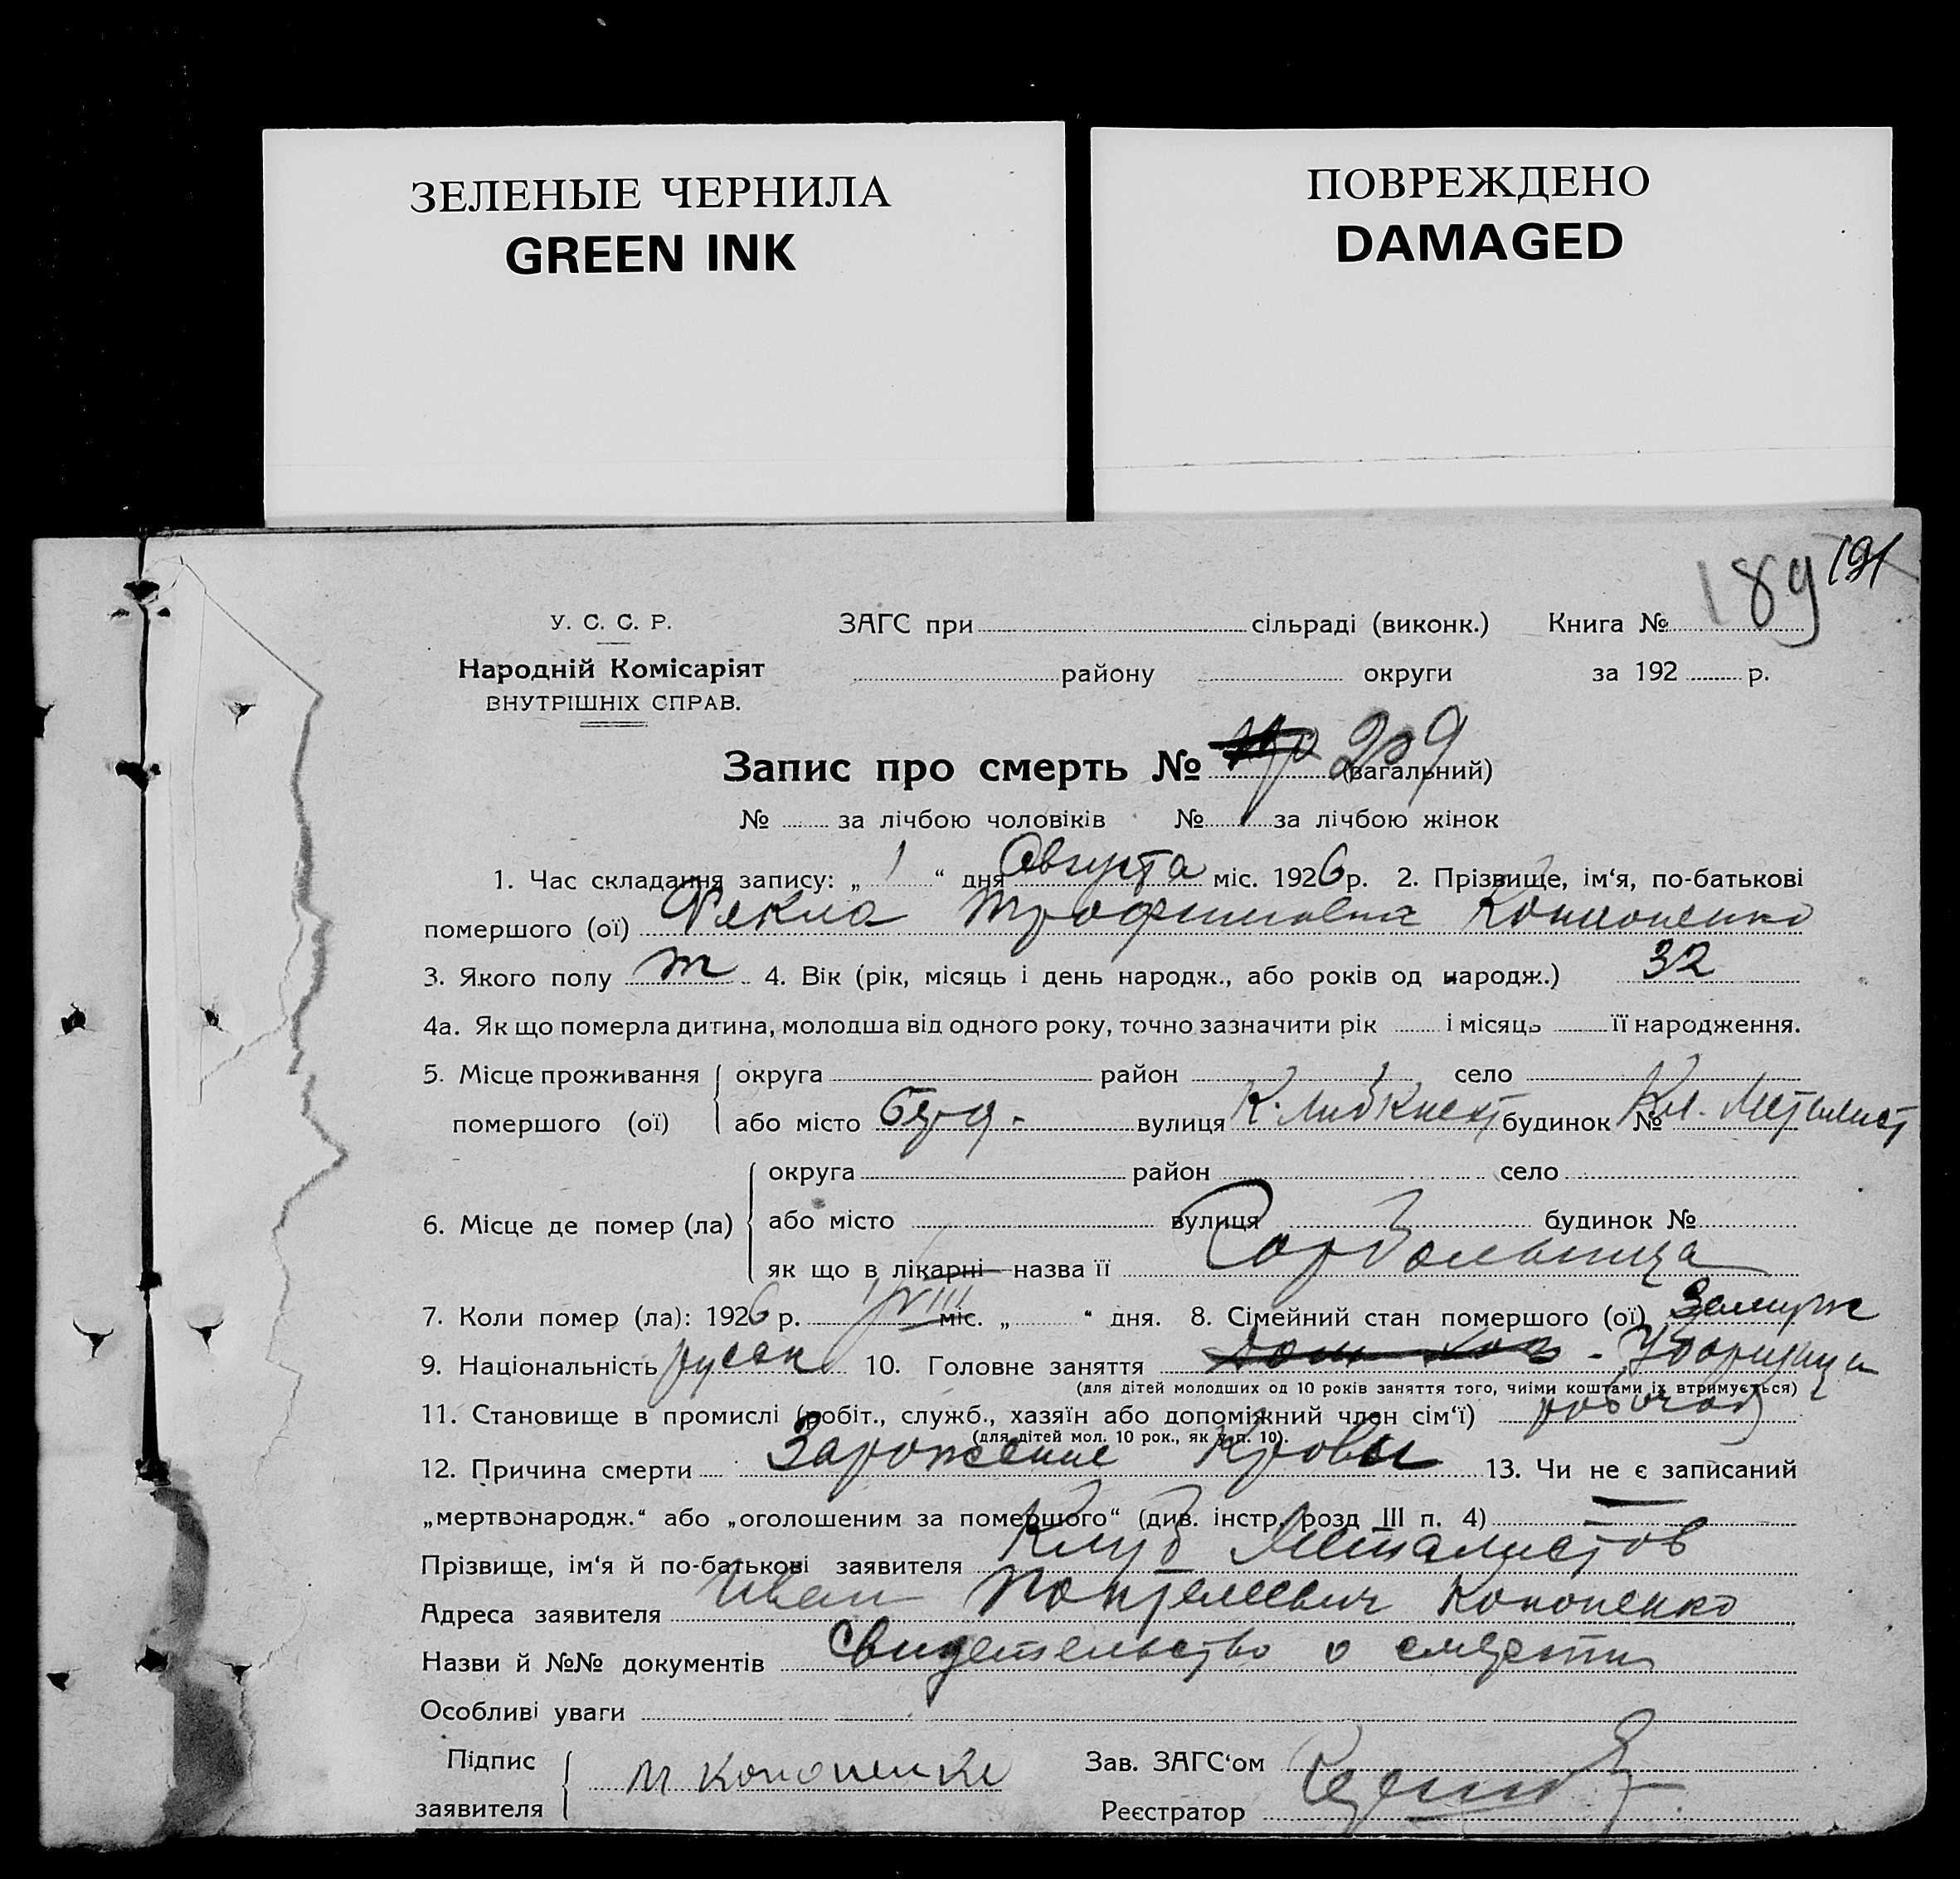 ЗЕЛЕНЫЕ ЧЕРНИЛА
GREEN INK
ПОВРЕЖДЕНО
DAMAGED
189 191
У. С. С. Р.
Народній Комісаріят
ВНУТРІШНІХ СПРАВ.
ЗАГС при сільраді (виконк.) Книга №
району округи за 192 р.
Запис про смерть № 209 (загальний)
№ за лічбою чоловіків № за лічбою жінок
1. Час складання запису: „ 1 “ дня Августа міс. 1926 р. 2. Прізвище, ім‘я, по-батькові
помершого (ої) Фекла Трофимовна Кононенко
3. Якого полу 4. Вік (рік, місяць і день народж., або років од народж.) 32
4а. Як що померла дитина, молодша від одного року, точно зазначити рік і місяць її народження.
5. Місце проживання округа район село
помершого (ої) або місто вулиця К. Либкнехт будинок № Кл. Металист
округа район село
6. Місце де помер (ла) або місто вулиця будинок №
як що в лікарні назва її Гор Больница
7. Коли помер (ла): 1926 р. 1/VIII міс. „ “ дня. 8. Сімейний стан помершого (ої) Замуж
9. Національність русск 10. Головне заняття Дом хоз - Уборщица
(для дітей молодших од 10 років заняття того, чиїми коштами їх втримується)
11. Становище в промислі (робіт., служб., хазяїн або допоміжний член сім‘ї) рабочая
(для дітей мол. 10 рок., як у п. 10).
12. Причина смерти Заражение Крови 13. Чи не є записаний
„мертвонародж.“ або „оголошеним за помершого“ (див. інстр. розд III п. 4)
Прізвище, ім‘я й по-батькові заявителя Клуб Металистов
Адреса заявителя Иван Понтелеевич Кононенко
Назви й №№ документів Свидетельство о смерти
Особливі уваги
Підпис
заявителя И Кононенко
Зав. ЗАГС‘ом
Реєстратор